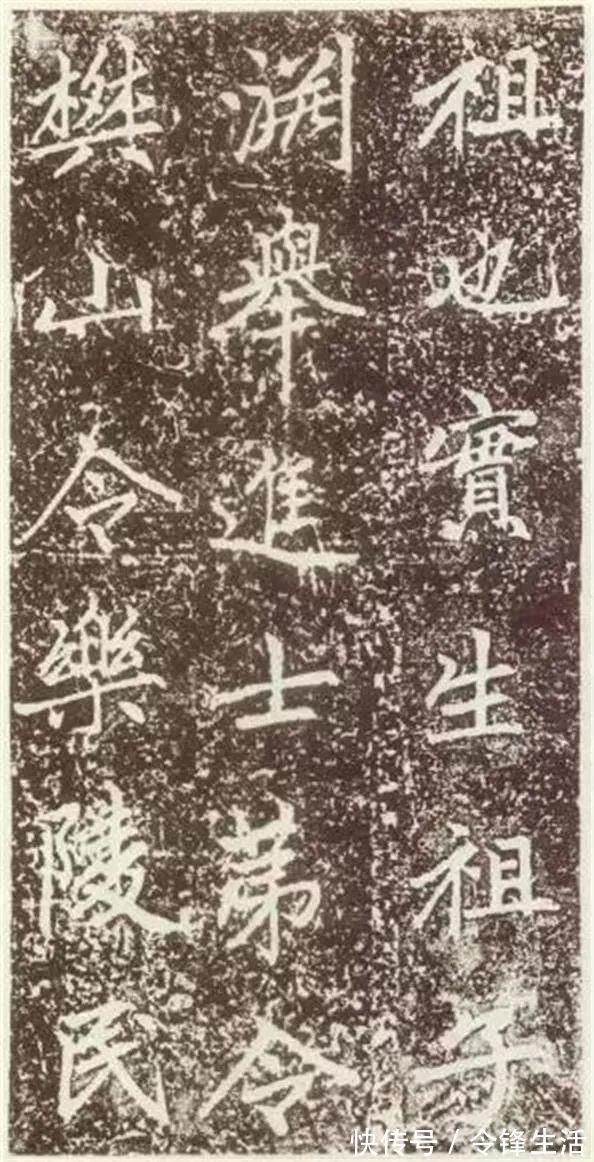 祖也實生祖子
淵舉進士苐令
樊山令樂陵民
快传号 / 令锋生活